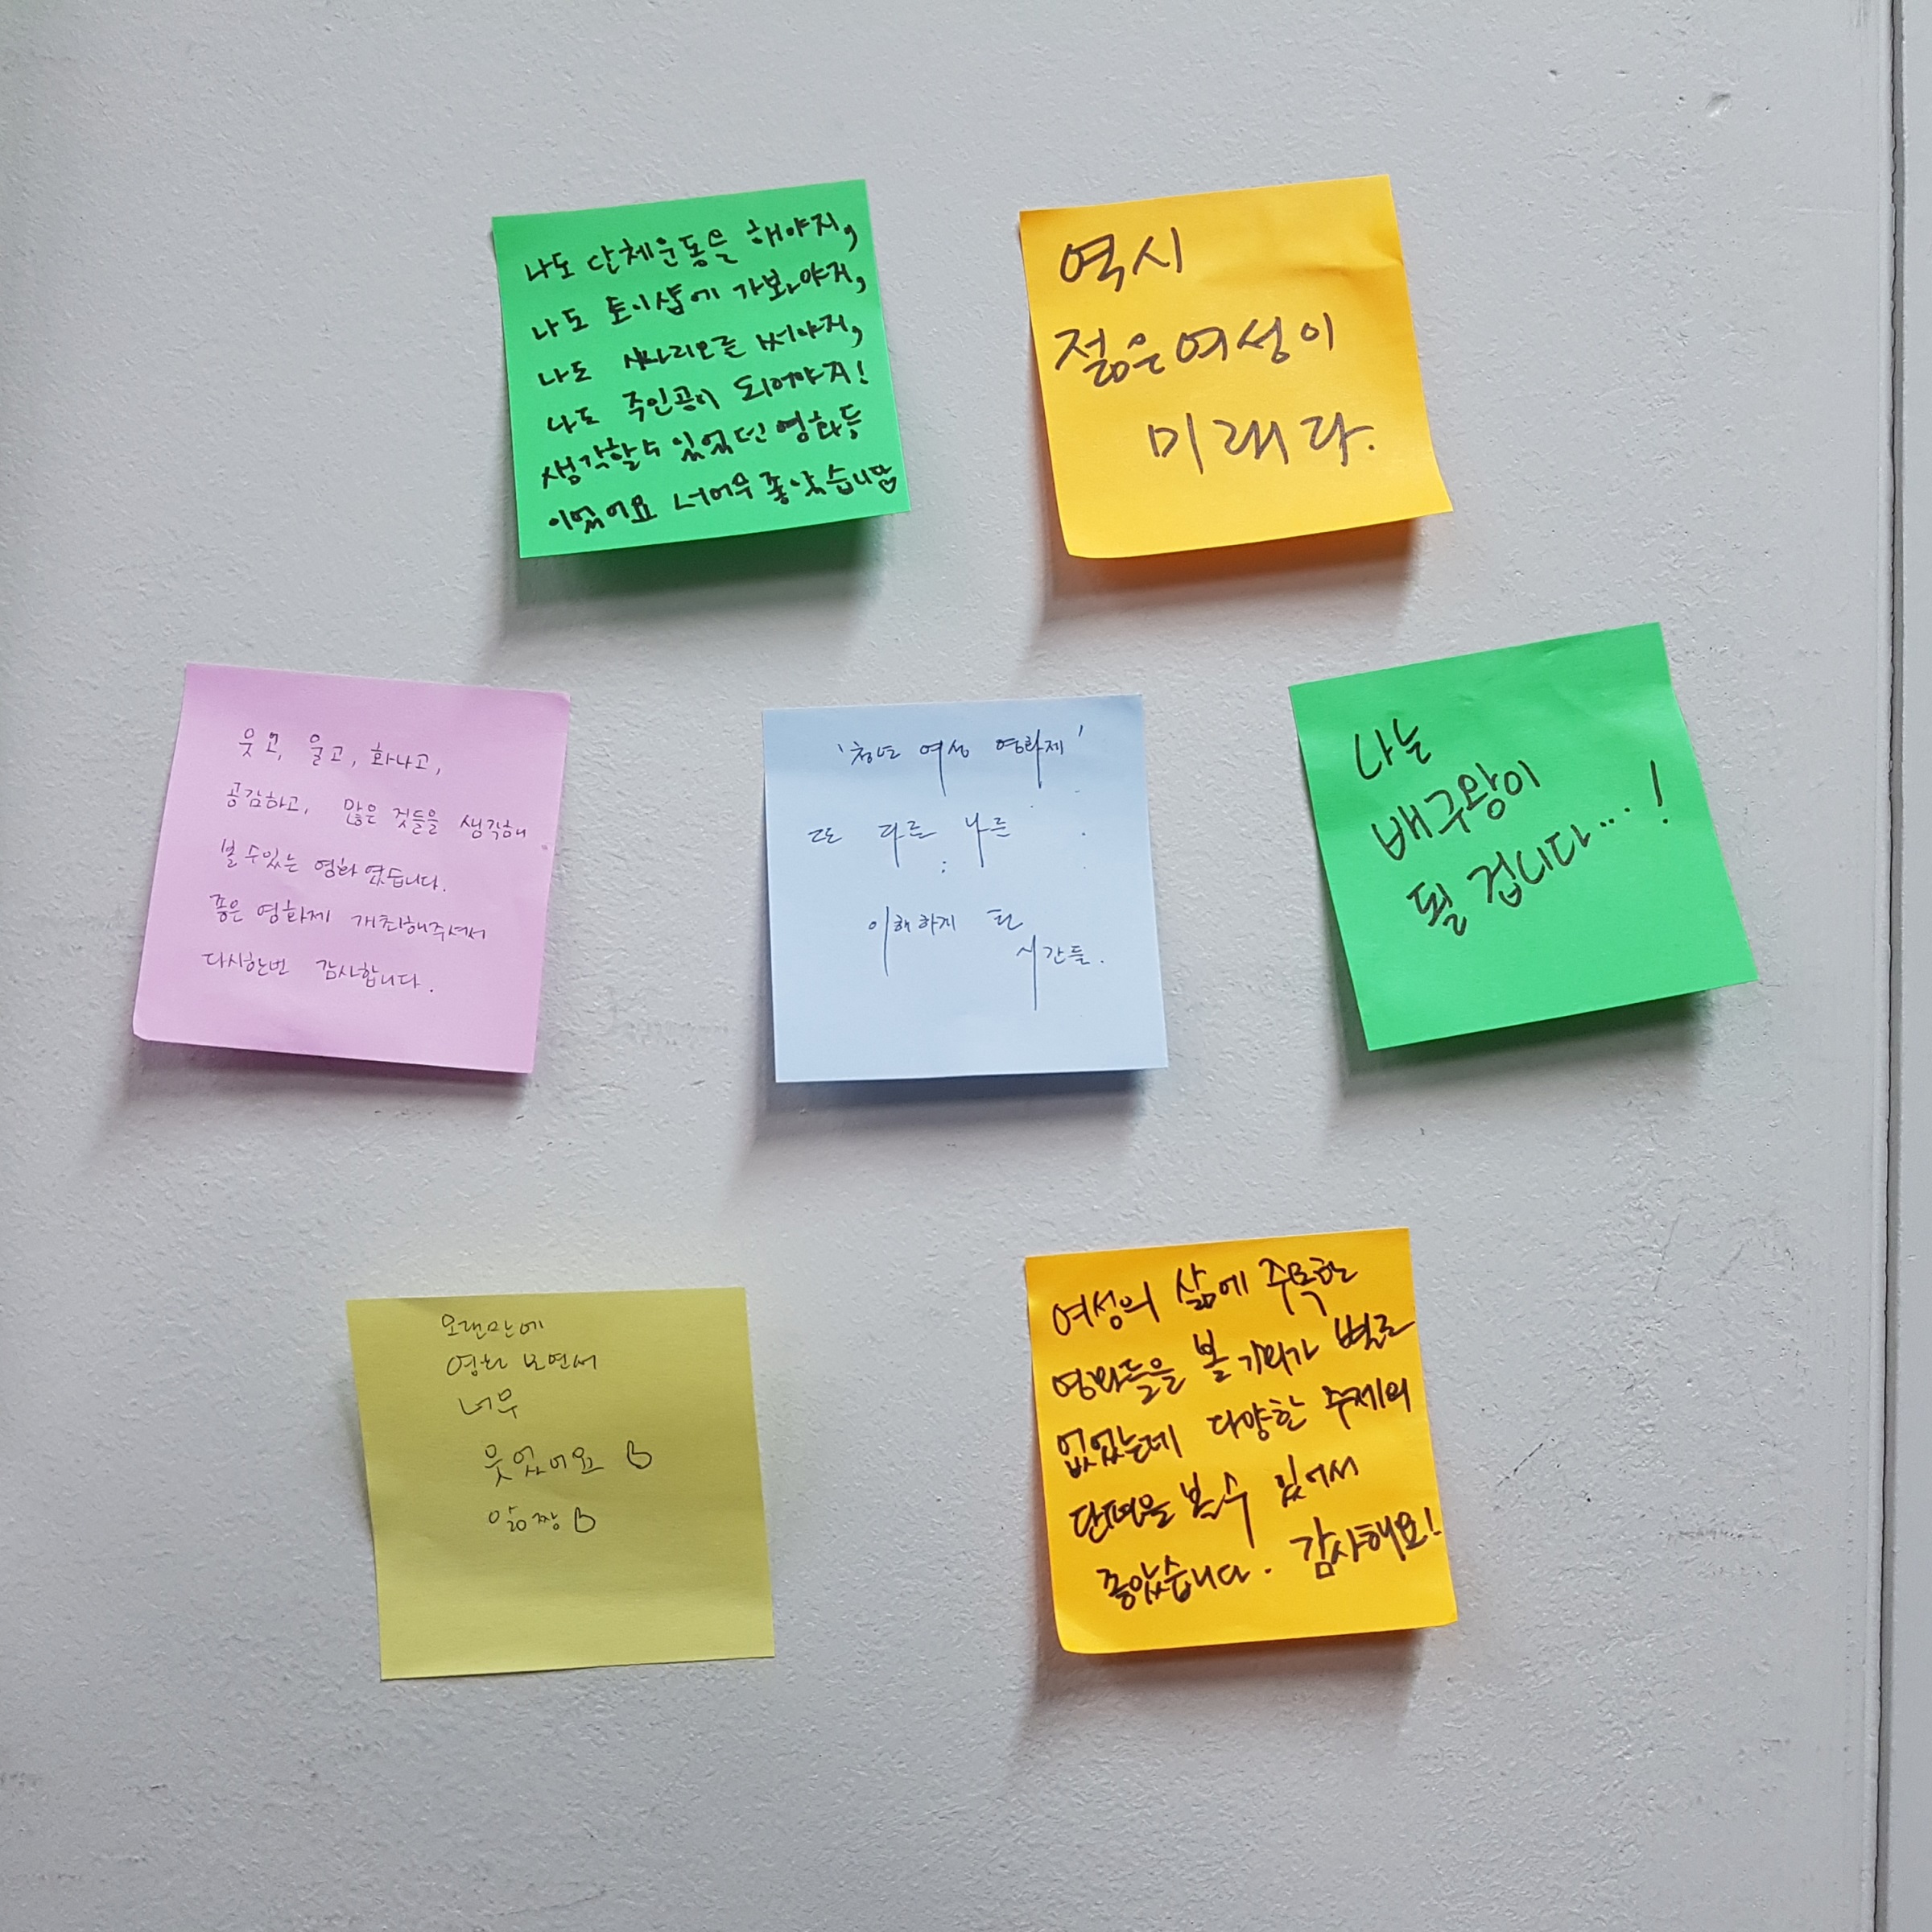 나도 단체운동을 해야지,
나도 토이샵에 가봐야지,
나도 시나리오를 써야지,
나도 주인공이 되어야지!
생각할수 있었던 영화들
이었어요 너어무 좋았습니땀
역시
젊은여성이
미래다.
웃고, 울고, 화나고,
공감하고, 많은 것들을 생각해
볼 수있는 영화였습니다.
좋은 영화제 개최해주셔서
다시한번 감사합니다.
'청년 여성 영화제'
또 다른 나를
이해하게 된
시간들.
나는
배구왕이
될 겁니다...!
오랜만에
영화 보면서
너무
웃었어요
짱
여성의 삶에 주목한
영화들을 볼 기회가 별로
없었는데 다양한 주제의
단편을 볼 수 있어서
좋았습니다. 감사해요!